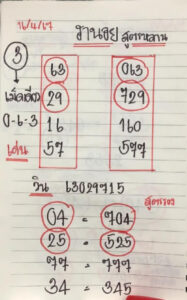 16/4/67
งานวย สูตรหลาน
3
63 063
เม็ดเดียว 29 729
0-6-3 16 160
เด่น 57 577
วิน 63029715
สูตรรอง
04 = 704
25 = 525
77 = 777
34 = 345